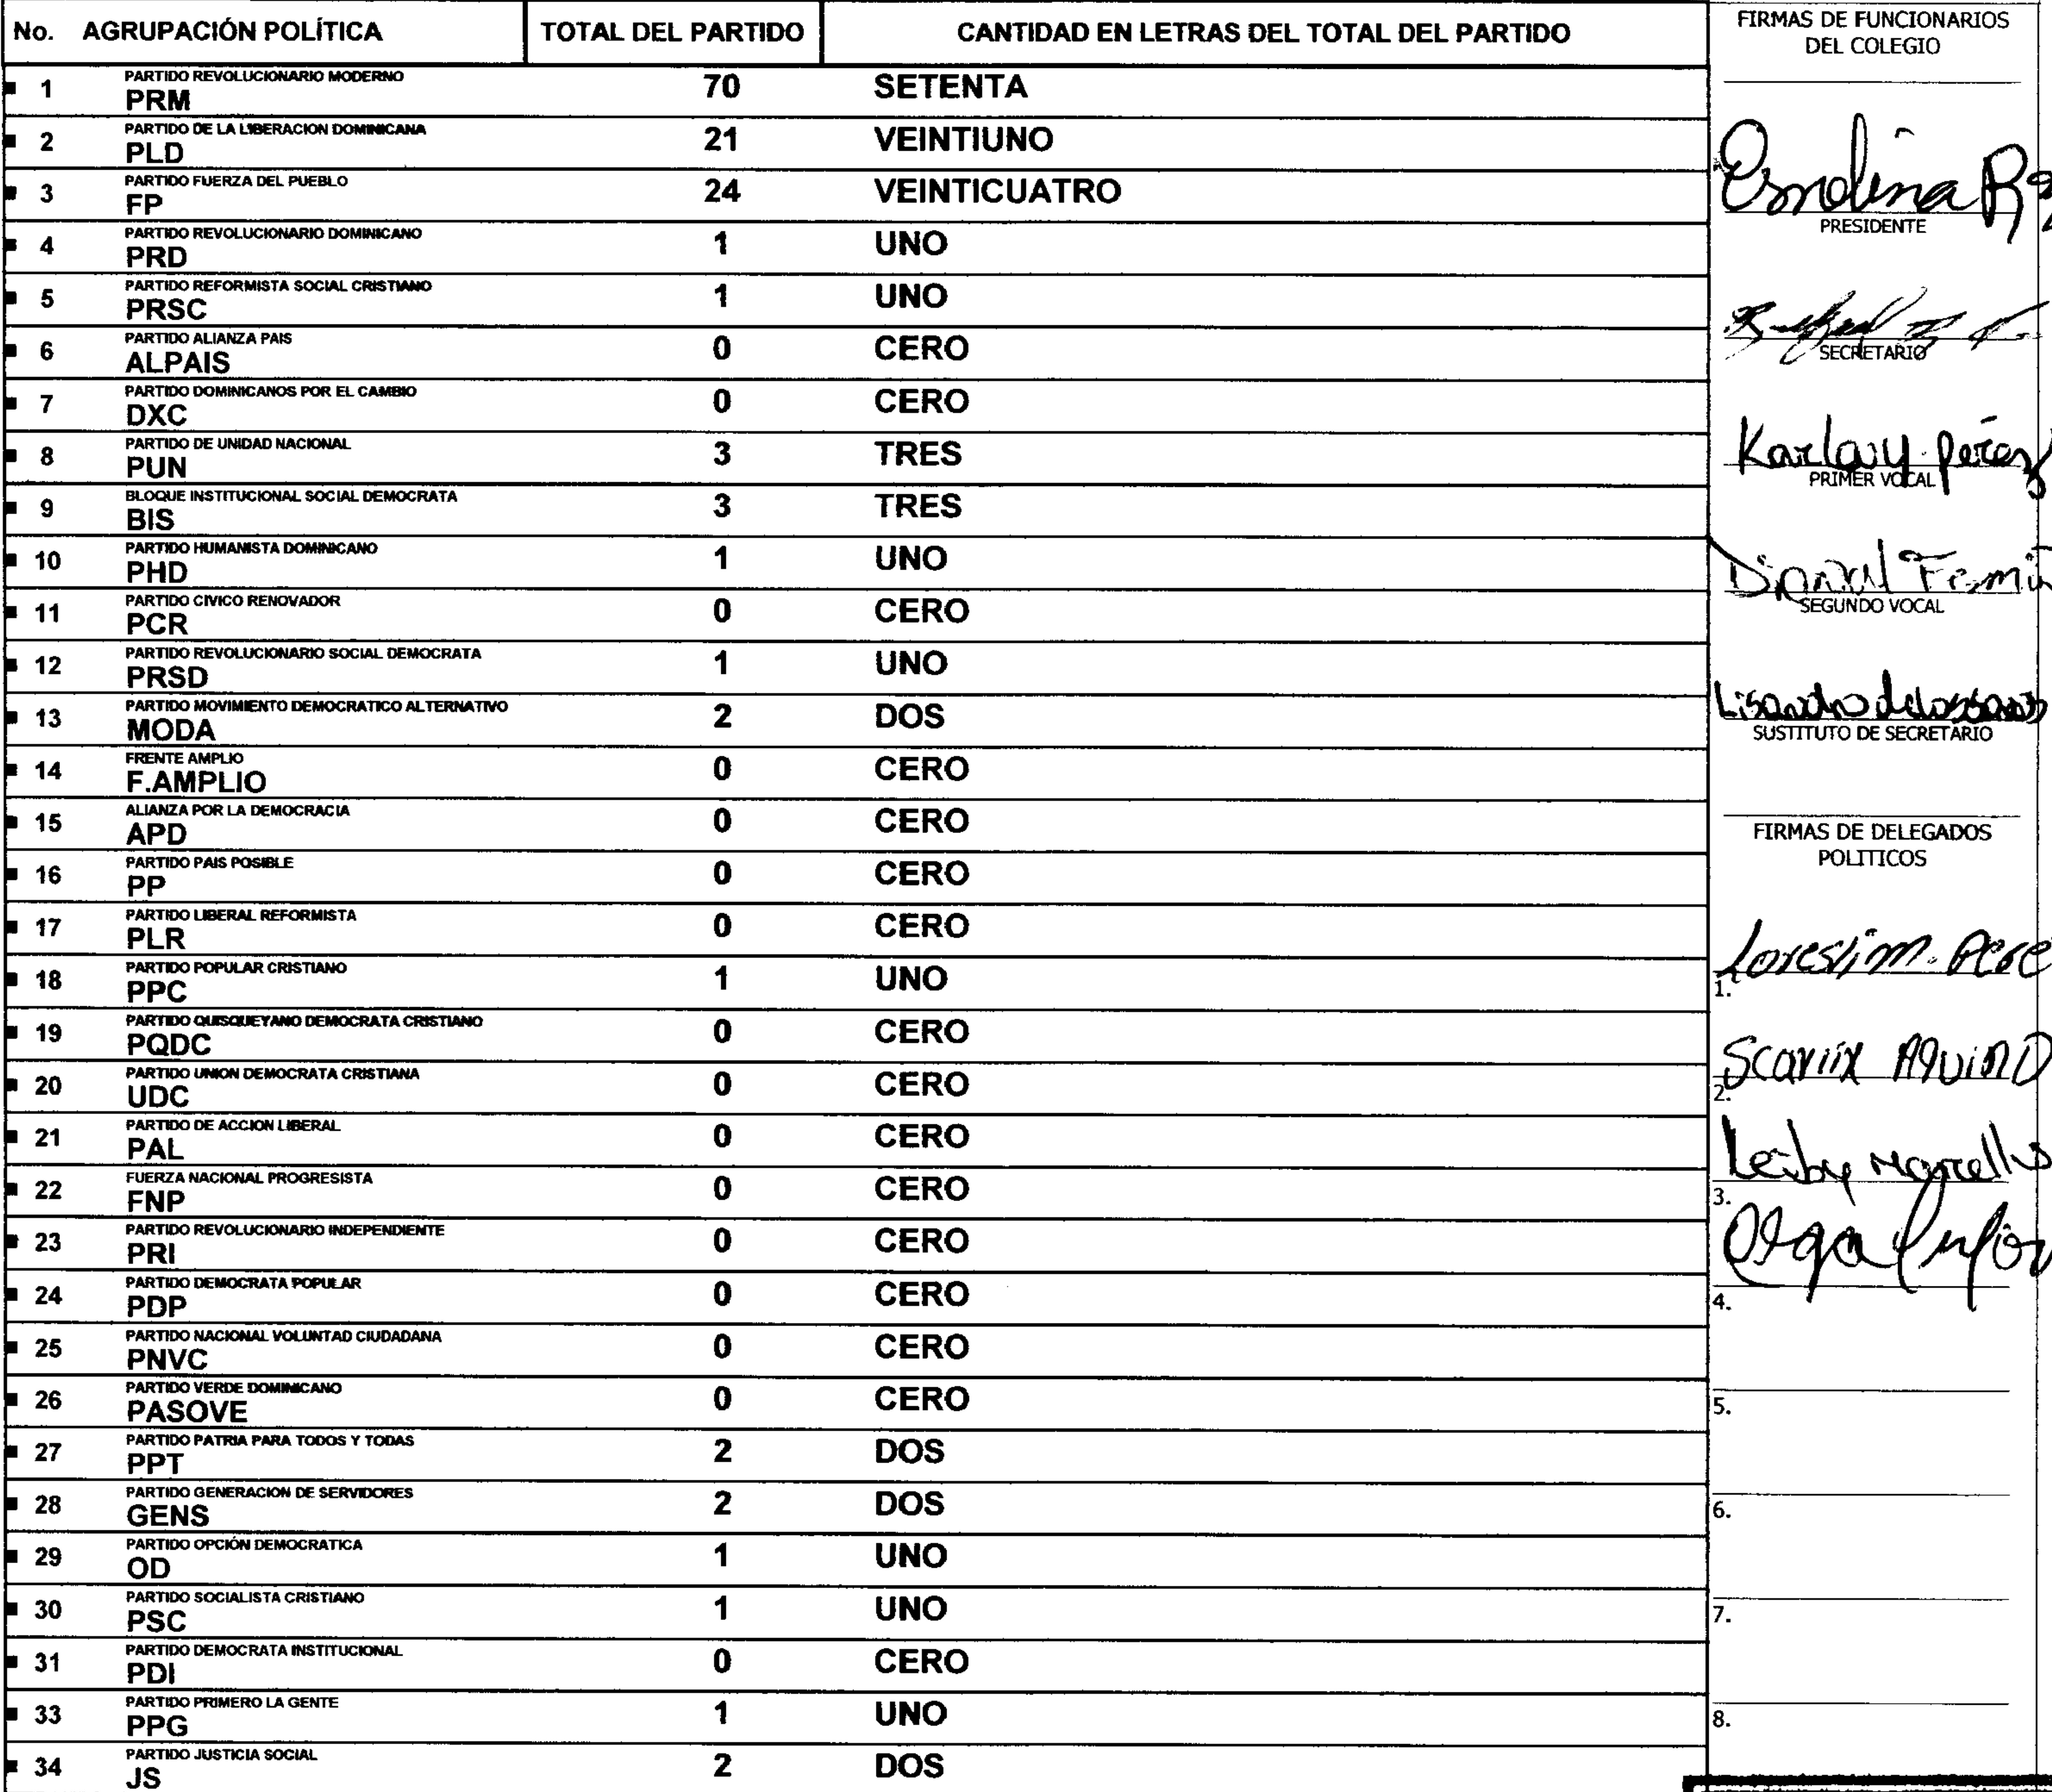 No. AGRUPACIÓN POLÍTICA TOTAL DEL PARTIDO CANTIDAD EN LETRAS DEL TOTAL DEL PARTIDO
1 PARTIDO REVOLUCIONARIO MODERNO
PRM 70 SETENTA
2 PARTIDO DE LA LIBERACION DOMINICANA
PLD 21 VEINTIUNO
3 PARTIDO FUERZA DEL PUEBLO
FP 24 VEINTICUATRO
4 PARTIDO REVOLUCIONARIO DOMINICANO
PRD 1 UNO
5 PARTIDO REFORMISTA SOCIAL CRISTIANO
PRSC 1 UNO
6 PARTIDO ALIANZA PAIS
ALPAIS 0 CERO
7 PARTIDO DOMINICANOS POR EL CAMBIO
DXC 0 CERO
8 PARTIDO DE UNIDAD NACIONAL
PUN 3 TRES
9 BLOQUE INSTITUCIONAL SOCIAL DEMOCRATA
BIS 3 TRES
10 PARTIDO HUMANISTA DOMINICANO
PHD 1 UNO
11 PARTIDO CIVICO RENOVADOR
PCR 0 CERO
12 PARTIDO REVOLUCIONARIO SOCIAL DEMOCRATA
PRSD 1 UNO
13 PARTIDO MOVIMIENTO DEMOCRATICO ALTERNATIVO
MODA 2 DOS
14 FRENTE AMPLIO
F.AMPLIO 0 CERO
15 ALIANZA POR LA DEMOCRACIA
APD 0 CERO
16 PARTIDO PAIS POSIBLE
PP 0 CERO
17 PARTIDO LIBERAL REFORMISTA
PLR 0 CERO
18 PARTIDO POPULAR CRISTIANO
PPC 1 UNO
19 PARTIDO QUISQUEYANO DEMOCRATA CRISTIANO
PQDC 0 CERO
20 PARTIDO UNION DEMOCRATA CRISTIANA
UDC 0 CERO
21 PARTIDO DE ACCION LIBERAL
PAL 0 CERO
22 FUERZA NACIONAL PROGRESISTA
FNP 0 CERO
23 PARTIDO REVOLUCIONARIO INDEPENDIENTE
PRI 0 CERO
24 PARTIDO DEMOCRATA POPULAR
PDP 0 CERO
25 PARTIDO NACIONAL VOLUNTAD CIUDADANA
PNVC 0 CERO
26 PARTIDO VERDE DOMINICANO
PASOVE 0 CERO
27 PARTIDO PATRIA PARA TODOS Y TODAS
PPT 2 DOS
28 PARTIDO GENERACION DE SERVIDORES
GENS 2 DOS
29 PARTIDO OPCIÓN DEMOCRATICA
OD 1 UNO
30 PARTIDO SOCIALISTA CRISTIANO
PSC 1 UNO
31 PARTIDO DEMOCRATA INSTITUCIONAL
PDI 0 CERO
33 PARTIDO PRIMERO LA GENTE
PPG 1 UNO
34 PARTIDO JUSTICIA SOCIAL
JS 2 DOS
FIRMAS DE FUNCIONARIOS
DEL COLEGIO
PRESIDENTE
SECRETARIO
Karlay perez
PRIMER VOCAL
SEGUNDO VOCAL
Lisandro de los santos
SUSTITUTO DE SECRETARIO
FIRMAS DE DELEGADOS
POLITICOS
1.
2. Aquino
3.
4. Olga
5.
6.
7.
8.